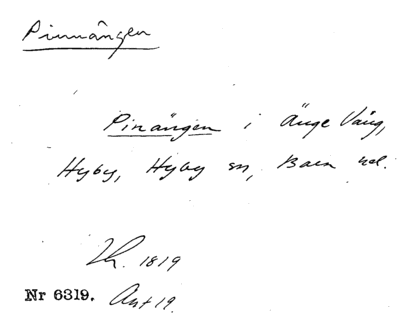 Pinnängen
Pinängen i Änge Vång,
Hyby, Hyby sn, Bara hd.
1819
Nr 6319. Ant 19.